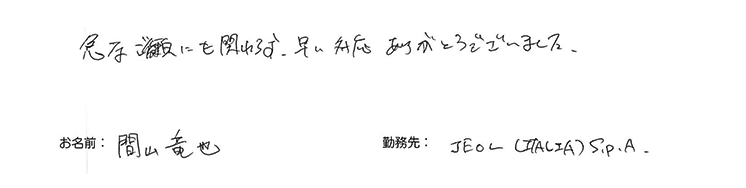 急なご願にも関わらず、早い対応ありがとうございました。
お名前： 間山 竜也　勤務先： JEOL (ITALIA) S.p.A.